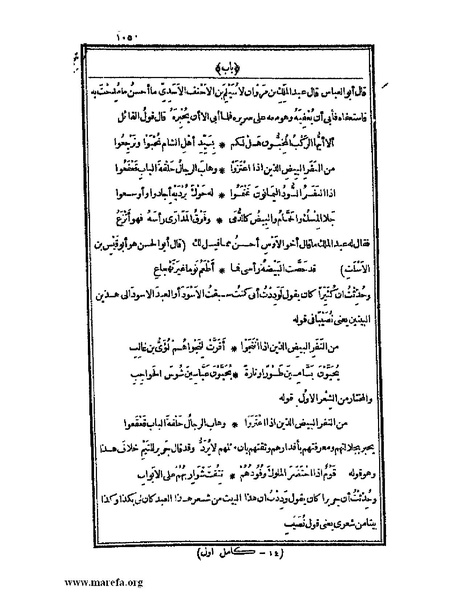 ١٠٥
﴿باب﴾
قال أبو العباس قال عبد الملك بن مروان لأسيلم بن الأحنف الأسدى ما أحسن ما مدحت به
فاستعفاه فأبى أن يعفيه وهو معه على سريره فلما أبى الا أن يخبره قال قول القائل
ألا أيها الركب المخبون هل لكم * بسيد أهل الشام تحبوا وترجعوا
من النفر البيض الذين اذا اعتزوا * وهاب الرجال حلقة الباب قعقعوا
اذا النفر السود اليمانون نمنموا * له حوك برديه أجادوا وأوسعوا
جلا المسك والحمام والبيض كالدمى * وفرق المدارى رأسه فهو أنزع
فقال له عبد الملك ما قال أخو الاوس أحسن مما قيل لك (قال أبو الحسن هو أبو قيس بن
الاسلت) قد حصت البيضة رأسى فما * أطعم نوما غير تهجاع
وحدثت أن كثيرا كان يقول لوددت أنى كنت سبقت الأسود أو العبد الاسود الى هذين
البيتين يعنى نصيبا فى قوله
من النفر البيض الذين اذا انتجوا * أقرت لنجواهم لؤى بن غالب
يحيون بسامين طورا وتارة * يحيون عباسين شوس الحواجب
والمختار من الشعر الاول قوله
من النفر البيض الذين اذا اعتزوا * وهاب الرجال حلقة الباب قعقعوا
يخبر بجلالتهم ومعرفتهم بأقدارهم وثقتهم بان مثلهم لا يرد وقد قال جرير للتيم خلاف هذا
وهو قوله قوم اذا احتضر الملوك وفودهم * نتفت شواربهم على الابواب
وحدثت أن جريرا كان يقول وددت أن هذا البيت من شعر هذا العبد كان لى بكذا وكذا
بيتا من شعرى يعنى قول نصيب
(١٤ - كامل اول)
www.marefa.org